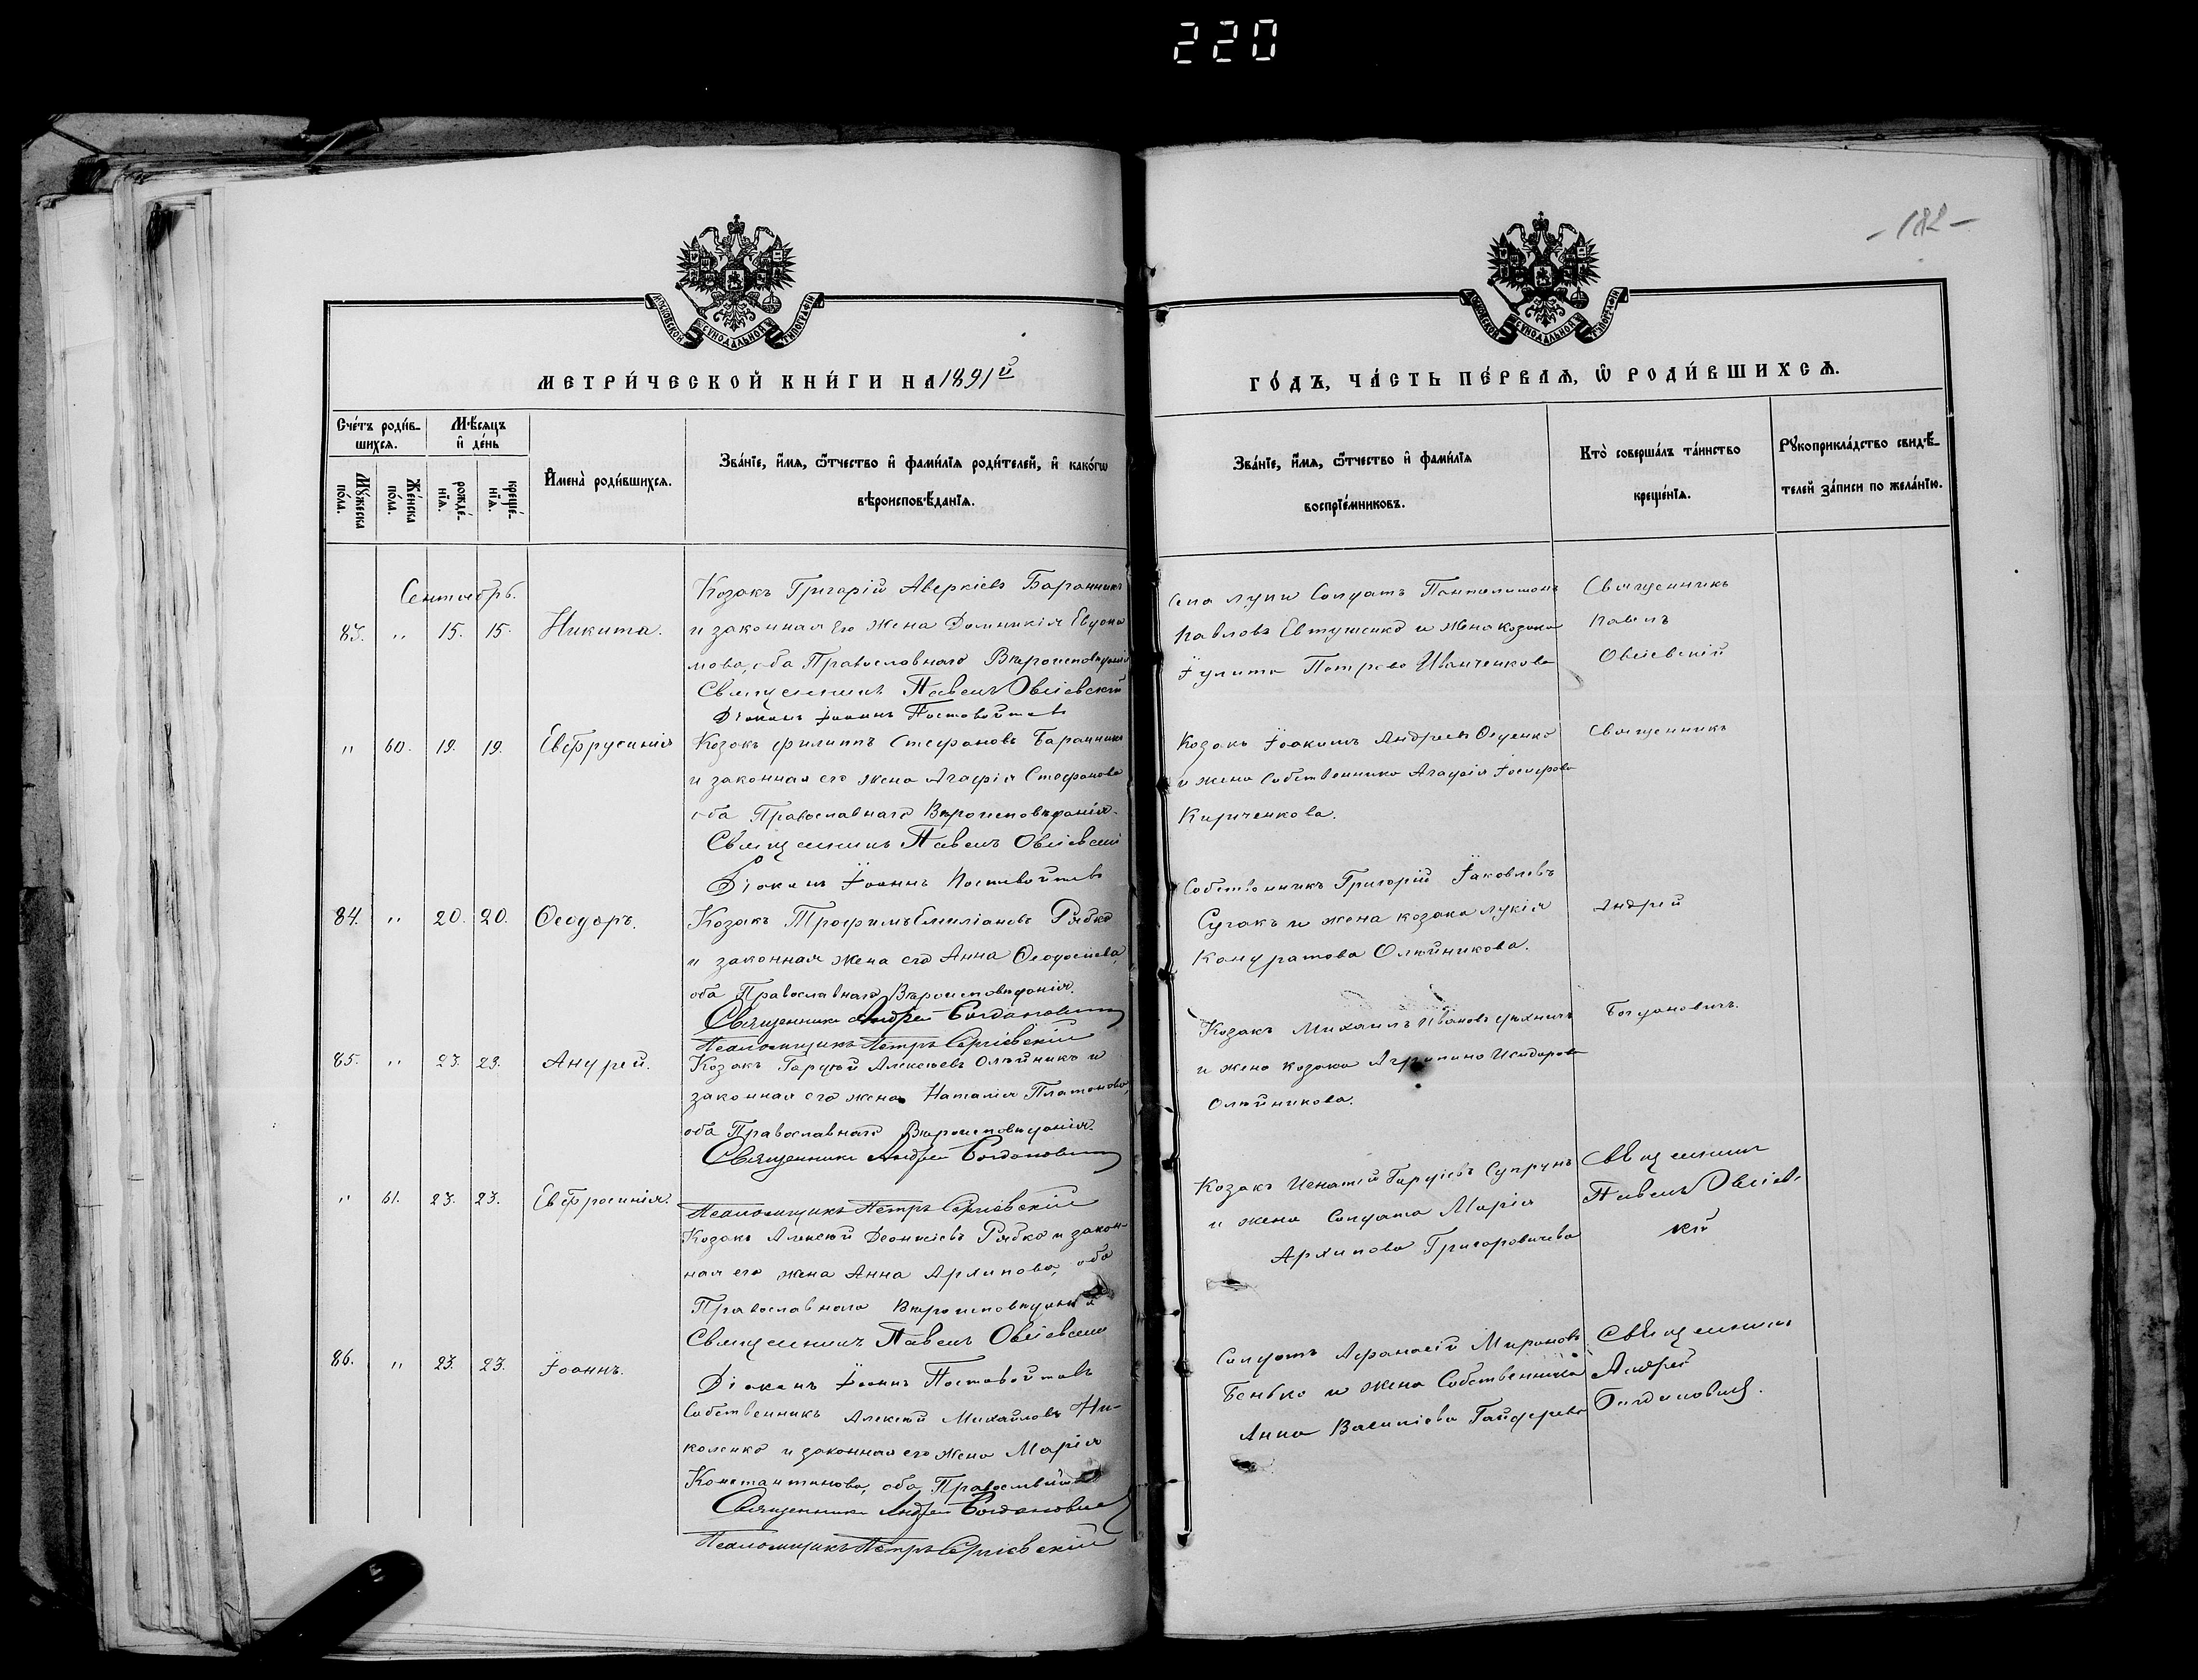 220
- 182 -
МОСКОВСКОЙ СѴНОДАЛЬНОЙ ТИПОГРАФІИ
МОСКОВСКОЙ СѴНОДАЛЬНОЙ ТИПОГРАФІИ
МЕТРИ́ЧЕСКОЙ КНИ́ГИ НА 1891й
ГО́ДЪ, ЧА́СТЬ ПЕ́РВАѦ, Ѡ҆ РОДИ́ВШИХСѦ.
Сче́тъ роди́вшихсѧ.
Мѣ́сѧцъ и҆ де́нь
Мꙋ́жеска по́ла.
Же́нска по́ла.
рожде́нїѧ.
креще́нїѧ.
И҆мена̀ роди́вшихсѧ.
Зва́нїе, и҆́мѧ, ѻ҆́тчество и҆ фами́лїѧ роди́телей, и҆ како́гѡ
вѣроисповѣ́данїѧ.
Зва́нїе, и҆́мѧ, ѻ҆́тчество и҆ фами́лїѧ
воспрїе́мниковъ.
Кто̀ соверша́лъ та́инство
креще́нїѧ.
Рꙋкоприкла́дство свидѣ́телей за́писи по жела́нїю.
Сентябрь.
83. " 15. 15. Никита.
Козакъ Григорій Аверкіевъ Баранникъ
и законная его жена Домникія Евдоки
мова, оба Православнаго Вѣроисповѣданія
Священникъ Павелъ Овсіевскій
Діаконъ Іоаннъ Постовойтовъ
Села Луки Солдатъ Пантелимонъ
Павловъ Евтушенко и жена козака
Іулита Петрова Иванченкова
Священникъ
Павелъ
Овсіевскій
" 60. 19. 19. Евфрусинія
Козакъ Филиппъ Стефановъ Баранникъ
и законная его жена Агафія Стефанова
оба Православнаго Вѣроисповѣданія.
Священникъ Павелъ Овсіевскій
Діаконъ Іоаннъ Постовойтовъ
Козакъ Іоакимъ Андреевъ
и жена Собственника Агафія Іосифова
Кириченкова.
Священникъ
84. " 20. 20. Ѳеодоръ.
Козакъ Трофимъ Емиліановъ Рябко
и законная жена его Анна Ѳеодосіева,
оба Православнаго Вѣроисповѣданія.
Священникъ Андрей Богдановичъ
Псаломщикъ Петръ Сергіевскій
Собственникъ Григорій Іаковлевъ
Сугакъ и жена козака Лукія
Кондратова Олѣйникова.
Андрей
85. " 23. 23. Андрей.
Козакъ Гордѣй Алексѣевъ Олѣйникъ и
законная его жена Наталія Платонова,
оба Православнаго Вѣроисповѣданія.
Священникъ Андрей Богдановичъ
Псаломщикъ Петръ Сергіевскій
Козакъ Михаилъ Ивановъ
и жена козака Агрипина Исидорова
Олѣйникова.
Богдановичъ.
" 61. 23. 23. Евфросинія.
Козакъ Алексѣй Леонтіевъ Рябко и закон-
ная его жена Анна Архипова, оба
Православнаго Вѣроисповѣданія
Священникъ Павелъ Овсіевскій
Діаконъ Іоаннъ Постовойтовъ
Козакъ Игнатій Гордіевъ Супрунъ
и жена Солдата Марія
Архипова Григоровичева
Священникъ
Павелъ Овсіев-
кій
86. " 23. 23. Іоаннъ.
Собственникъ Алексѣй Михайловъ Ни-
коленко и законная его жена Марія
Константинова, оба Православнаго
Священникъ Андрей Богдановичъ
Псаломщикъ Петръ Сергіевскій
Солдатъ Афанасій Мироновъ
Бенько и жена Собственника
Анна Василіева
Священникъ
Андрей
Богдановичъ.